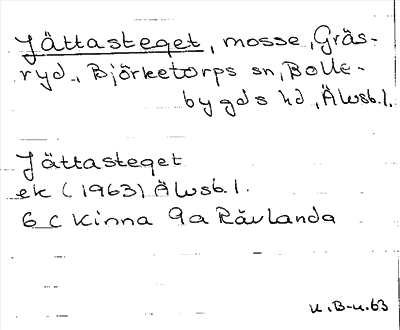 Jättasteget, mosse, Gräs-
ryd., Björketorps sn, Bolle-
bygds hd, Älvsb. l.
Jättasteget
ek (1963) Älvsb. l.
6 C Kinna 9a Rävlanda
U.B-u.63